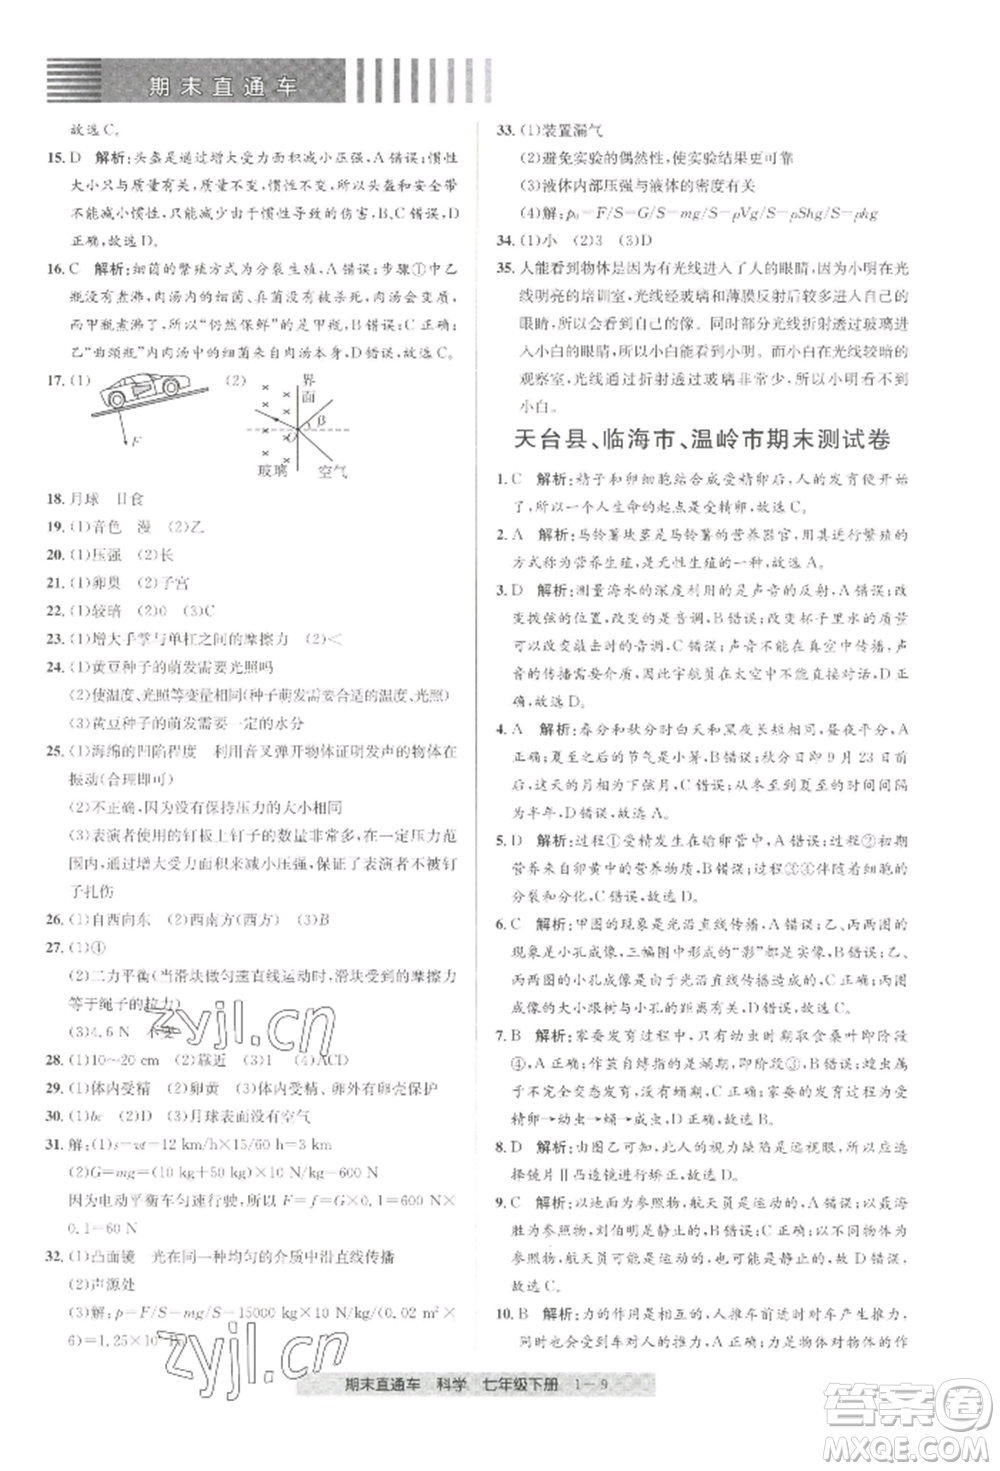 期末直通车
故选C。
15. D 解析:头盔是通过增大受力面积减小压强,A错误;惯性
大小只与质量有关,质量不变,惯性不变,所以头盔和安全带
不能减小惯性,只能减少由于惯性导致的伤害,B、C错误,D
正确,故选D。
16. C 解析:细菌的繁殖方式为分裂生殖,A错误;步骤①中乙
瓶没有煮沸,肉汤中的细菌、真菌没有被杀死,B错误;步骤
而甲瓶煮沸了,所以“仍然保鲜”的是甲瓶,C正确;
乙“曲颈瓶”内肉汤中的细菌来自肉汤中,D错误。故选C。
17. (1) (2)
F
界
面
β
玻璃
空气
18. 月球 日食
19. (1)音色 漫 (2)乙
20. (1)压强 (2)长
21. (1)卵巢 (2)子宫
22. (1)较暗 (2)0 (3)C
23. (1)增大手掌与单杠之间的摩擦力 (2)<
24. (1)黄豆种子的萌发需要光照吗
(2)使温度、光照等变量相同(种子萌发需要合适的温度、光照)
(3)黄豆种子的萌发需要一定的水分
25. (1)海绵的凹陷程度 利用音叉弹开物体证明发声的物体在
振动(合理即可)
(2)不正确,因为没有保持压力的大小相同
(3)表演者使用的钉板上钉子的数量非常多,在一定压力范
围内,通过增大受力面积来减小压强,保证了表演者不被钉
子扎伤
26. (1)自西向东 (2)西南方(西方) (3)B
27. (1)④
(2)二力平衡(当滑块做匀速直线运动时,滑块受到的摩擦力
等于绳子的拉力)
(3)4.6 N 不变
28. (1)10~20 cm (2)靠近 (3)1 (4)ACD
29. (1)体内受精 (2)卵黄 (3)体内受精、卵外有卵壳保护
30. (1)bc (2)D (3)月球表面没有空气
31. 解:(1)s=vt=12 km/h×15/60 h=3 km
(2)G=mg=(10 kg+50 kg)×10 N/kg=600 N
因为电动平衡车匀速行驶,所以F=f=G×0.1=600 N×
0.1=60 N
32. (1)凸面镜 光在同一种均匀的介质中沿直线传播
(2)声源处
(3)解:p=F/S=G/S=15000 kg×10 N/kg/(0.02 m²×
6)=1.25×10⁶ Pa
33. (1)装置漏气
(2)避免实验的偶然性,使实验结果更可靠
(3)液体内部压强与液体的密度有关
(4)解:p₀=F/S=G/S=mg/S=ρVg/S=ρShg/S=ρhg
34. (1)小 (2)3 (3)D
35. 人能看到物体是因为有光线进入了人的眼睛,因为小明在光
线明亮的培训室,光线经玻璃和薄膜反射后进入小明的
眼睛,所以会看到自己的像。同时部分光线折射透过玻璃
进入小白的眼睛,所以小白能看到小明。而小白在光线较暗的
观察室,光线通过折射透过玻璃非常少,所以小明看不到
小白。
天台县、临海市、温岭市期末测试卷
1. C 解析:精子和卵细胞结合成受精卵后,人的发育便开始
了,所以一个人生命的起点是受精卵,故选C。
2. A 解析:马铃薯块茎是马铃薯的营养器官,用其进行繁殖的
方式称为营养生殖,是无性生殖的一种,故选A。
3. D 解析:测量海水的深度利用的是声音的反射,A错误;改
变拨动的位置,改变的是音调,B错误;改变杯子里水的质量
可以改变敲击时的音调,C错误;声音不能在真空中传播,声
音的传播需要介质,所以宇航员在太空中不能直接对话,D
正确,故选D。
4. A 解析:春分和秋分时白天和黑夜长短相同,昼夜平分,A
正确;夏至之后的节气是小暑,B错误;秋分日即9月23日前
后,这天的月相为下弦月,C错误;夏至与冬至的时间间隔
为半年,D错误,故选A。
5. D 解析:过程①受精发生在输卵管中,A错误;过程②初期
营养来自卵黄中的营养物质,B错误;过程③④伴随着细胞的
分裂和分化,C错误,故选D。
6. C 解析:甲图的现象是光沿直线传播,A错误;乙、丙两图的
现象是小孔成像,三幅图中所成的“影”都是实像,B错误;乙、
丙两图的小孔成像是因为光沿直线传播,C正确;乙、丙两图
成像的大小跟树与小孔的距离有关,D错误,故选C。
7. B 解析:家蚕发育过程中,幼虫时期取食桑叶即阶段
④,A错误;作茧自缚指的是蛹期,即阶段③,B正确;蝗虫属
于不完全变态发育,没有蛹期,C错误;家蚕的发育过程为
受精卵→幼虫→蛹→成虫,D错误,故选B。
8. D 解析:由图乙可知,此人的视力缺陷是远视眼,所以应选
择镜片Ⅱ凸透镜进行矫正,故选D。
9. C 解析:以地面为参照物,航天员是运动的,A错误;以聂海
胜为参照物,刘伯明是静止的,B错误;以不同物体为参照物,
航天员可能是运动的,可能是静止的,C正确,D错误,故
选C。
10. B 解析:力的作用是相互的,人推车时对车产生推力,
同时也会受到车对人的推力,A正确;力是物体对物体的作
期末直通车 科学 七年级下册 1-9
zyjl.cn
zyjl.cn
答案圈
MXQE.COM